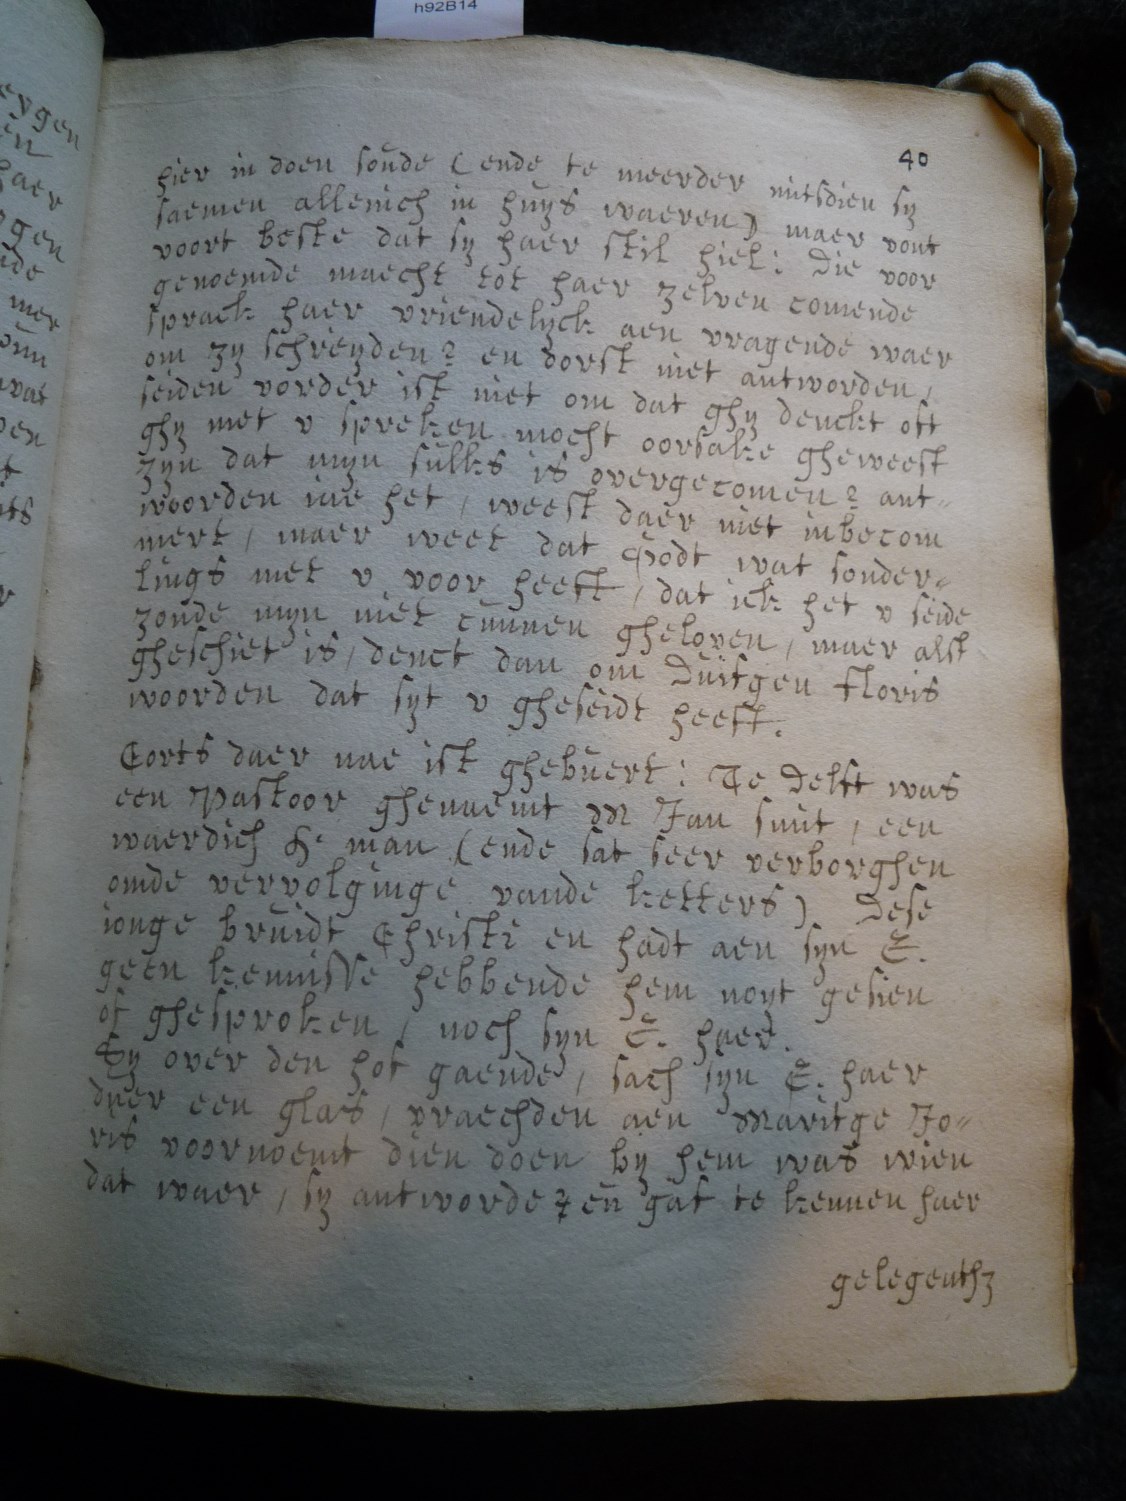 h92B14
40
hier in doen soude (ende te meerder mitsdien sy
saemen allenich in huys waeren) maer vont
voort beste dat sy haer stil hiel: Die voor
genoemde maecht tot haer zelven comende
sprack haer vriendelyck aen vragende waer
om zy schreyden? en dorst niet antworden,
seiden vorder ist niet om dat ghy denckt oft
ghy met v spreken mocht oorsake gheweest
zyn dat myn sulks is overgecomen? ant-
woorden iae het, weest daer niet in becom
mert, maer weet dat Godt wat sonder-
lings met v voor heeft, dat ick het v seide
zoude myn niet cunnen gheloven, maer alst
gheschiet is, denct dan om Duifgen floris
woorden dat syt v gheseidt heeft.
Corts daer nae ist ghebuert: Te Delft was
een Pastoor ghenaemt M Jan smit, een
waerdich H. man (ende sat seer verborghen
omde vervolginge vande ketters). Dese
ionge bruidt Christi en hadt aen syn E.
geen kennisse hebbende hem noyt gesien
of ghesproken, noch syn E. haer.
Sy over den hof gaende, sach syn E. haer
doer een glas, vraechden aen Maritge Jo-
ris voornoemt dien doen by hem was wien
dat waer, sy antworde en gaf te kennen haer
gelegenth